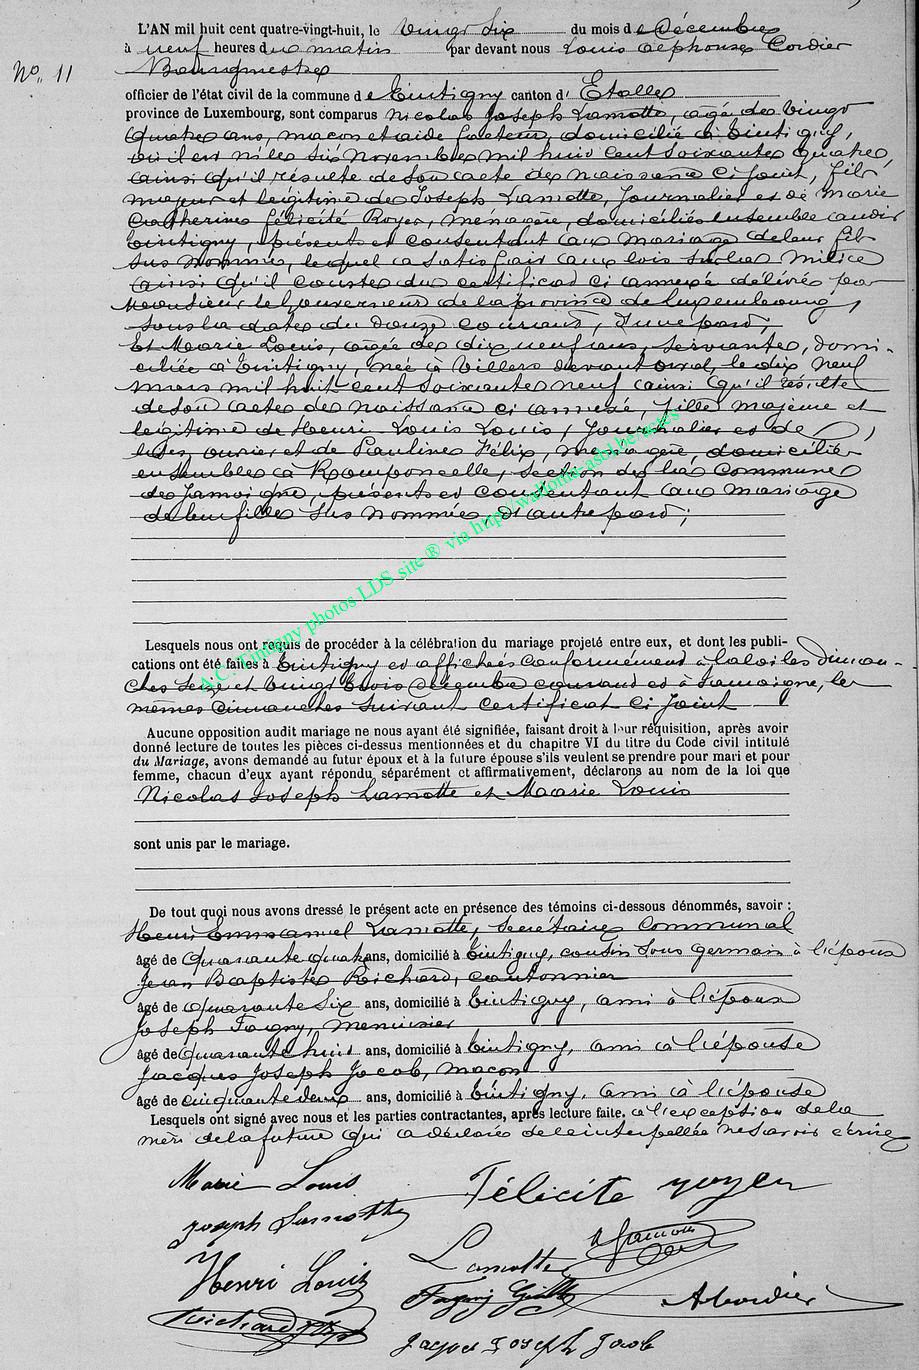 L'AN mil huit cent quatre-vingt-huit, le vingt six du mois de Décembre
à neuf heures du matin par devant nous Louis Alphonse Cordier
No. 11
Bourgmestre
officier de l'état civil de la commune de Tintigny canton d'Etalle
province de Luxembourg, sont comparus Nicolas Joseph Lamotte, agé de vingt
quatre ans, macon et aide facteur, domicilié à Tintigny,
où il est né le six Novembre mil huit cent soixante quatre,
ainsi qu'il résulte de son acte de naissance ci joint, fils
majeur et légitime de Joseph Lamotte, journalier et de Marie
Catherine Félicité Royer, menagère, domiciliés ensemble audit
Tintigny, présents et consentant au mariage de leur fils
sus nommé, lequel a satisfait aux lois sur la milice
ainsi qu'il conste du certificat ci annexé délivré par
Monsieur le Gouverneur de la province de Luxembourg,
sous la date du douze courant, d'une part;
Et Marie Louis, agée de dix neuf ans, servante, domi-
ciliée à Tintigny, née à Villers devant orval, le dix neuf
mars mil huit cent soixante neuf ainsi qu'il résulte
de son acte de naissance ci annexé, fille majeure et
légitime de Henri Louis Louis, journalier et de
et de Pauline Félix, menagère, domiciliés
ensemble à Romponcelle, section de la commune
de Jamoigne, présents et consentant au mariage
de leur fille sus nommée d'autre part;
A.C. Tintigny photos LDS site ® via http://wallonia-asbl.be/actes
Lesquels nous ont requis de procéder à la célébration du mariage projeté entre eux, et dont les publi-
cations ont été faites à Tintigny et affichées conformément à la loi les diman-
ches seize et vingt trois décembre courant et à Jamoigne, les
mêmes dimanches suivant certificat ci joint
Aucune opposition audit mariage ne nous ayant été signifiée, faisant droit à leur réquisition, après avoir
donné lecture de toutes les pièces ci-dessus mentionnées et du chapitre VI du titre du Code civil intitulé
du Mariage, avons demandé au futur époux et à la future épouse s'ils veulent se prendre pour mari et pour
femme, chacun d'eux ayant répondu séparément et affirmativement, déclarons au nom de la loi que
Nicolas Joseph Lamotte et Marie Louis
sont unis par le mariage.
De tout quoi nous avons dressé le présent acte en présence des témoins ci-dessous dénommés, savoir :
Henri Emmanuel Lamotte, secrétaire communal
âgé de quarante quatre ans, domicilié à Tintigny, cousin sous germain à l'époux
Jean Baptiste Richard, cantonnier
âgé de quarante six ans, domicilié à Tintigny, ami à l'époux
Joseph Fagny, menuisier
âgé de quarante huit ans, domicilié à Tintigny, ami à l'épouse
Jacques Joseph Jacob, macon
âgé de cinquante deux ans, domicilié à Tintigny, ami à l'épouse
Lesquels ont signé avec nous et les parties contractantes, après lecture faite. à l'exception de la
mère de la future qui a déclaré de ce interpellée ne savoir écrire
Marie Louis
Félicité royer
Joseph Lamotte
Henri Louis
Lamotte
Richard
Fagny
ACordier
Jacques Joseph Jacob